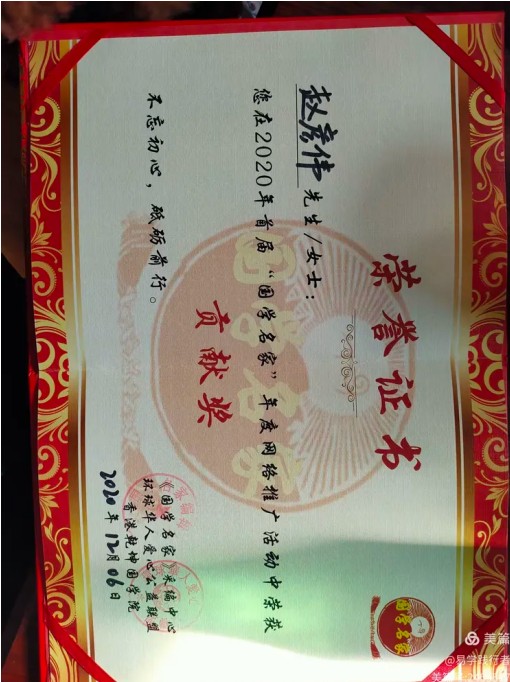 荣誉证书
赵彦伟 先生/女士：
您在2020年首届“国学名家”年度网络推广活动中荣获
贡献奖
不忘初心，砥砺前行。
《国学名家》采编中心
环球华人爱心公益联盟
香港乾坤国学院
2020年12月06日
国学名家
国学名家
美篇
@易学践行者